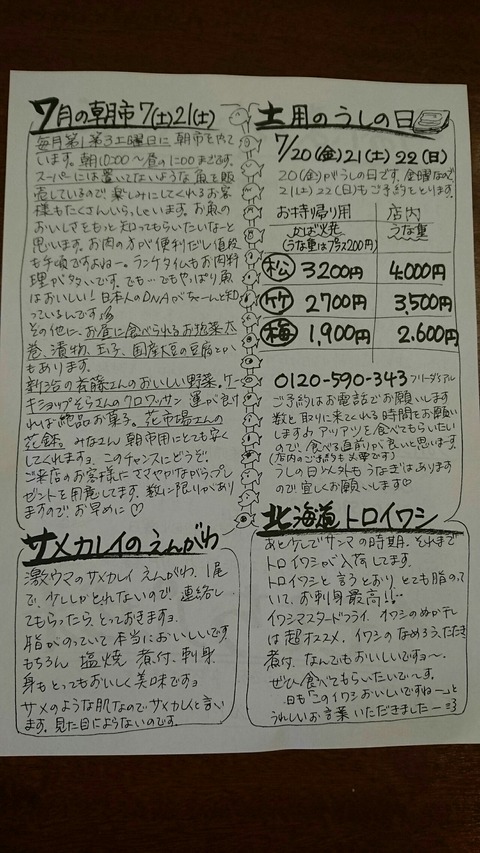 7月の朝市 7(土)21(土)
毎月第1第3土曜日に朝市をやて
います。朝10:00〜昼の1:00までです。
スーパーには置いてないような魚を販
売しているので、楽しみにしてくれるお客
様もたくさんいらっしゃいます。お魚の
おいしさをもっと知ってもらいたいなーと
思います。お肉の方が便利だし値段
も手頃ですよねー。ランチタイムもお肉料
理が多いです。でも…でもやっぱり魚
はおいしい!日本人のDNAがちゃーんと知
っているんです
その他に、お昼に食べられるお抜菜太
巻、漬物、玉子、国産大豆の豆腐とか
もあります。
新治の斎藤さんのおいしい野菜。ケー
キショップそらさんのクロワッサン 運が良け
れば絶品お菓子。花市場さんの
花鉢。みなさん朝市用にとても安く
してくれますョ。このチャンスにどうぞ。
ご来店のお客様にささやかながらプレ
ゼントを用意してます。数に限りがあり
ますので、お早めに♡
土用のうしの日
7/20(金)21(土)22(日)
20(金)がうしの日です。金曜なので
21(土)22(日)もご予約をとります。
お持ち帰り用 店内
かば焼 うな重
(うな重はプラス200円)
松 3200円 4,000円
竹 2700円 3,500円
梅 1,900円 2,600円
0120-590-343 フリーダイアル
ご予約はお電話でお願いします
数と取りに来てくれる時間をお願い
しますね アツアツを食べてもらいたい
ので、食べる直前が良いと思います。
(店内のご予約も必要です)
うしの日以外もうなぎはあります
ので宜しくお願いします♡
サメカレイのえんがわ
激ウマのサメカレイ えんがわ、1尾
で、少ししかとれないので、連絡し
てもらったら、とっておきますョ。
脂がのっていて本当においしいです。
もちろん 塩焼 煮付、刺身
身もとってもおいしく美味ですョ
サメのような肌なのでサメカレイと言い
ます。見た目によらないのです。
北海道トロイワシ
あと少しでサンマの時期、それまで
トロイワシが入荷してます。
トロイワシと言うとおり、とても脂のっ
ていて、お刺身最高!!
イワシマスタードフライ イワシのぬか干し
は超オススメ、イワシのなめろう、たたき
煮付、なんでもおいしいですョ〜。
ぜひ食べてもらいたいで〜す。
日も「このイワシおいしいですね〜」と
うれしいお言葉いただきましたー